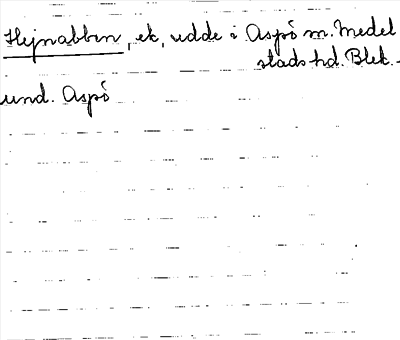 Hejnabben, ek, udde i Aspö m. Medel
stads hd. Blek.
und. Aspö